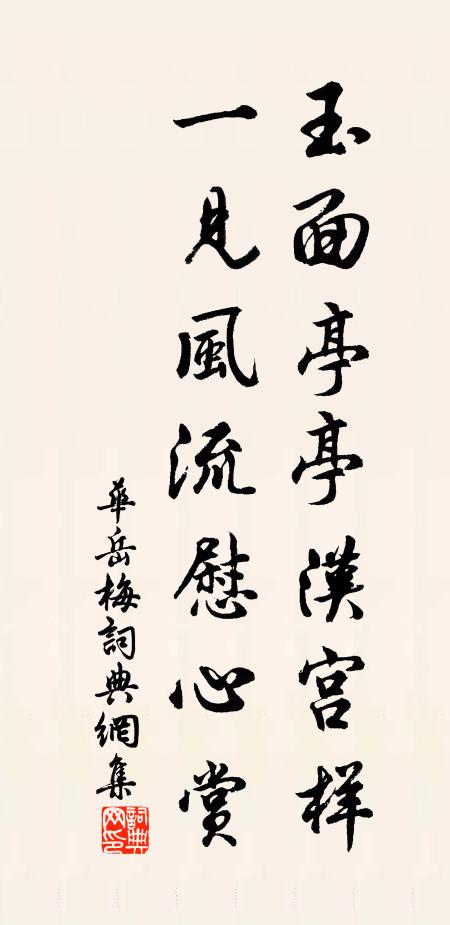 玉面亭亭漢宮样
一見風流慰心赏
華岳梅詞典網集
詞典网印